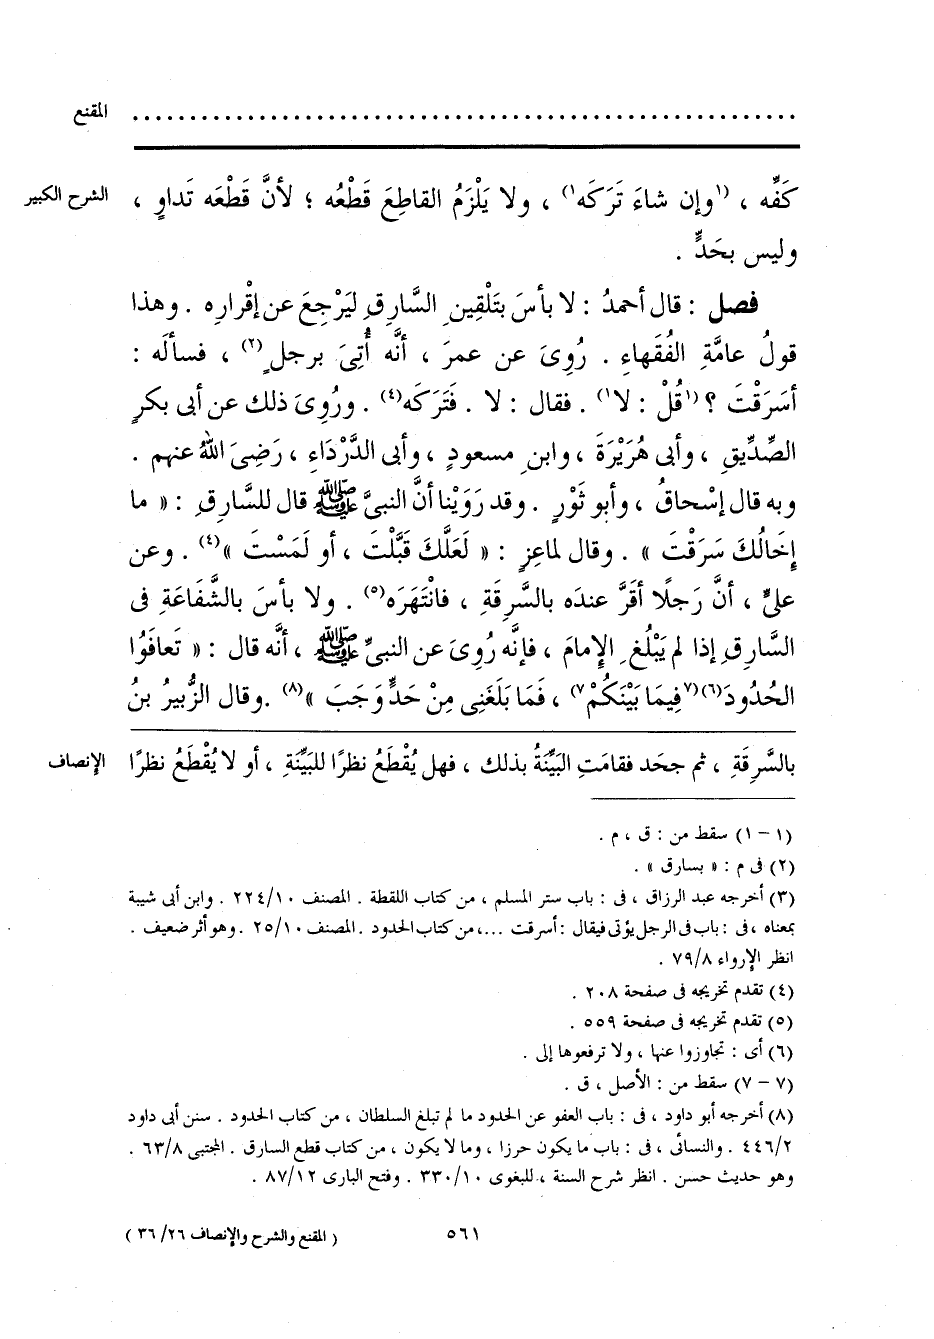 المقنع ........................................................
الشرح الكبير
كَفِّه ، (١وإن شاءَ تَرَكَه١) ، ولا يَلْزَمُ القاطِعَ قَطْعُه ؛ لأنَّ قَطْعَه تَداوٍ ،
وليس بحَدٍّ .
فصل : قال أحمدُ : لا بأسَ بتَلْقِينِ السَّارِقِ لِيَرْجِعَ عن إقْرارِه . وهذا
قولُ عامَّةِ الفُقَهاءِ . رُوِىَ عن عمرَ ، أنَّه أُتِىَ برجلٍ(٢) ، فسألَه :
أسَرَقْتَ ؟ (١قُلْ : لا١) . فقال : لا . فَتَرَكَه(٤) . ورُوِىَ ذلك عن أبى بكرٍ
الصِّدِّيقِ ، وأبى هُرَيْرَةَ ، وابنِ مسعودٍ ، وأبى الدَّرْدَاءِ ، رَضِىَ اللهُ عنهم .
وبه قال إسْحاقُ ، وأبو ثَوْرٍ . وقد رَوَيْنا أنَّ النبىَّ ﷺ قال للسَّارِقِ : « ما
إِخَالُكَ سَرَقْتَ » . وقال لماعِزٍ : « لَعَلَّكَ قَبَّلْتَ ، أو لَمَسْتَ »(٤) . وعن
علىٍّ ، أنَّ رَجلًا أقَرَّ عندَه بالسَّرِقَةِ ، فانْتَهَرَه(٥) . ولا بأسَ بالشَّفَاعَةِ فى
السَّارِقِ إذا لم يَبْلُغِ الإِمامَ ، فإنَّه رُوِىَ عن النبىِّ ﷺ ، أنَّه قال : « تَعافَوُا
الحُدُودَ(٦)(٧فِيمَا بَيْنَكُمْ٧) ، فَمَا بَلَغَنِى مِنْ حَدٍّ وَجَبَ »(٨) . وقال الزُّبيرُ بنُ
الإنصاف
بالسَّرِقَةِ ، ثم جحَد فقامَتِ البَيِّنَةُ بذلك ، فهل يُقْطَعُ نظرًا للبَيِّنَةِ ، أو لا يُقْطَعُ نظرًا
(١ – ١) سقط من : ق ، م .
(٢) فى م : « بسارق » .
(٣) أخرجه عبد الرزاق ، فى : باب ستر المسلم ، من كتاب اللقطة . المصنف ١٠/ ٢٢٤ . وابن أبى شيبة
بمعناه ، فى : باب فى الرجل يؤتى فيقال : أسرقت ...، من كتاب الحدود . المصنف ١٠/ ٢٥ . وهو أثر ضعيف .
انظر الإرواء ٨/ ٧٩ .
(٤) تقدم تخريجه فى صفحة ٢٠٨ .
(٥) تقدم تخريجه فى صفحة ٥٥٩ .
(٦) أى : تجاوزوا عنها ، ولا ترفعوها إلى .
(٧ – ٧) سقط من : الأصل ، ق .
(٨) أخرجه أبو داود ، فى : باب العفو عن الحدود ما لم تبلغ السلطان ، من كتاب الحدود . سنن أبى داود
٢/ ٤٤٦ . والنسائى ، فى : باب ما يكون حرزا ، وما لا يكون ، من كتاب قطع السارق . المجتبى ٨/ ٦٣ .
وهو حديث حسن . انظر شرح السنة ، للبغوى ١٠/ ٣٣٠ . وفتح البارى ١٢/ ٨٧ .
٥٦١
( المقنع والشرح والإنصاف ٢٦/ ٣٦ )